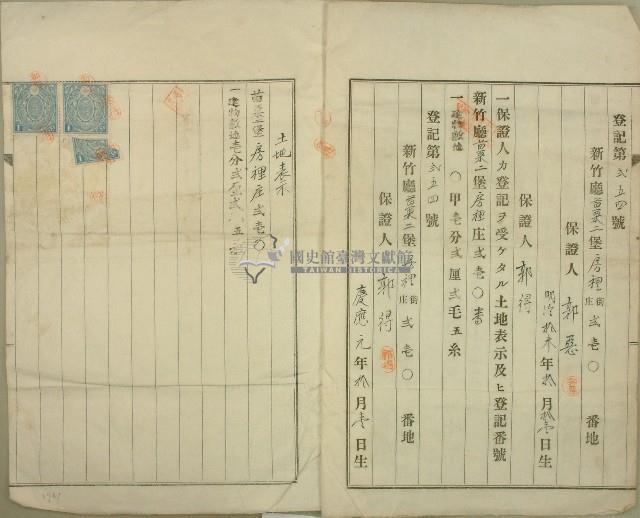 登記第弐五四號
新竹廳苗栗二堡房裡街庄弐壱〇番地
保證人 郭
明治拾年拾月拾壱日生
保證人 郭得
一保證人カ登記ヲ受ケタル土地表示及ヒ登記番號
新竹廳苗栗二堡房裡庄弐壱〇番
一建物敷地 〇甲壱分弐厘弐毛五糸
登記第弐五四號
新竹廳苗栗二堡房裡街庄弐壱〇番地
保證人 郭得
慶應元年拾月壱日生
土地表示
苗栗二堡房裡庄弐壱〇
一建物敷地壱分弐厘弐毛五糸
國史館臺灣文獻館
TAIWAN HISTORICA